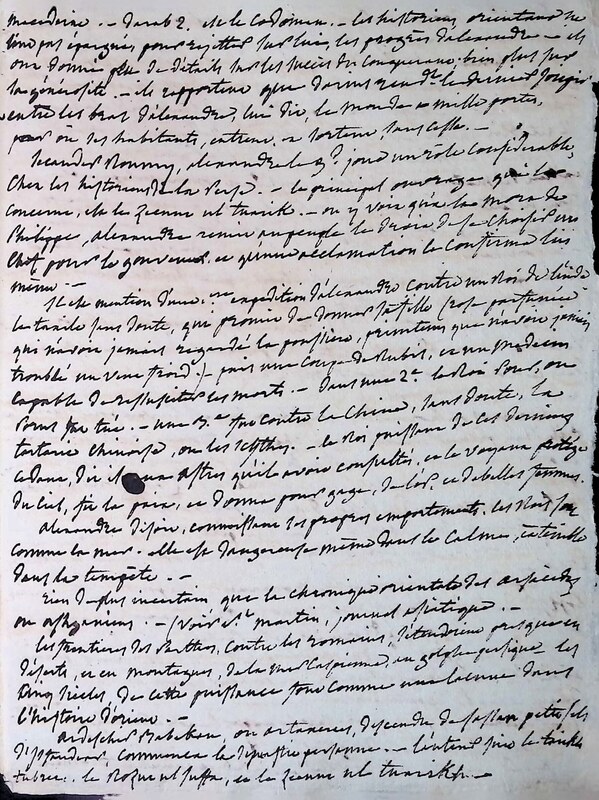 macédoine. - Darab 2. est le Codoman. - les historiens orientaux ne
l'ont pas épargné, pour rejetter sur lui, les progrès d'alexandre - ils
ont donné peu de détails sur les succès du conquérant; bien plus sur
la générosité. - ils rapportent que darius rendt. le dernier soupir
entre les bras d'alexandre, lui dit, le monde a mille portes,
par où ses habitants, entrent, et sortent sans cesse. -
alexandre le gd. joue un rôle considérable,
Chez les historiens de la Perse. - le principal ouvrage qui le
concerne, est le Zeenut ul tuarikh. - on y voit qu'à la mort de
Philippe, alexandre remit au peuple le droit de se choisir un
Chef pour le gouverner, et qu'une acclamation le confirma lui
même. -
Il est mention d'une expédition d'alexandre contre un Roi de l'inde
sans doute, qui promit de donner sa fille
qui n'avoit jamais regardé la poussière, printems que n'avoit jamais
troublé un vent froid) - puis une coupe de Rubis, et un médecin
capable de ressusciter les morts. - Dans une 2e. le Roi Pour, ou
Porus fut tué. - une 3e. fut contre la Chine, sans doute, la
tartarie chinoise, ou les scythes. - le Roi puissant de ces derniers
céda, dit il aux astres qu'il avoit consultés, et le voyant protégé
du Ciel, fit la paix, et donna pour gage, de l'or, et de belles femmes.
alexandre disoit, connoissant ses propres emportements, les Rois sont
comme la mer - elle est dangereuse même dans le calme, et terrible
dans la tempête. -
rien de plus incertain que la chronique orientale des arsacides
ou ashganiens. - (voir St. martin, journal asiatique. -
les frontières des Parthes, contre les romains, s'étendirent presque en
déserts, et en montagnes, de la mer Caspienne, au golphe persique les
cinq siècles de cette puissance sont comme une lacune dans
l'histoire d'orient. -
ardeschir Babekan, ou artaxerxes, descendu de Sassan petit fils
d'isfundear, commença la dynastie persanne. - l'auteur suit le tarikh
Tubree, le Rozut ul suffa, et le Zeenut ul tuarikh. -